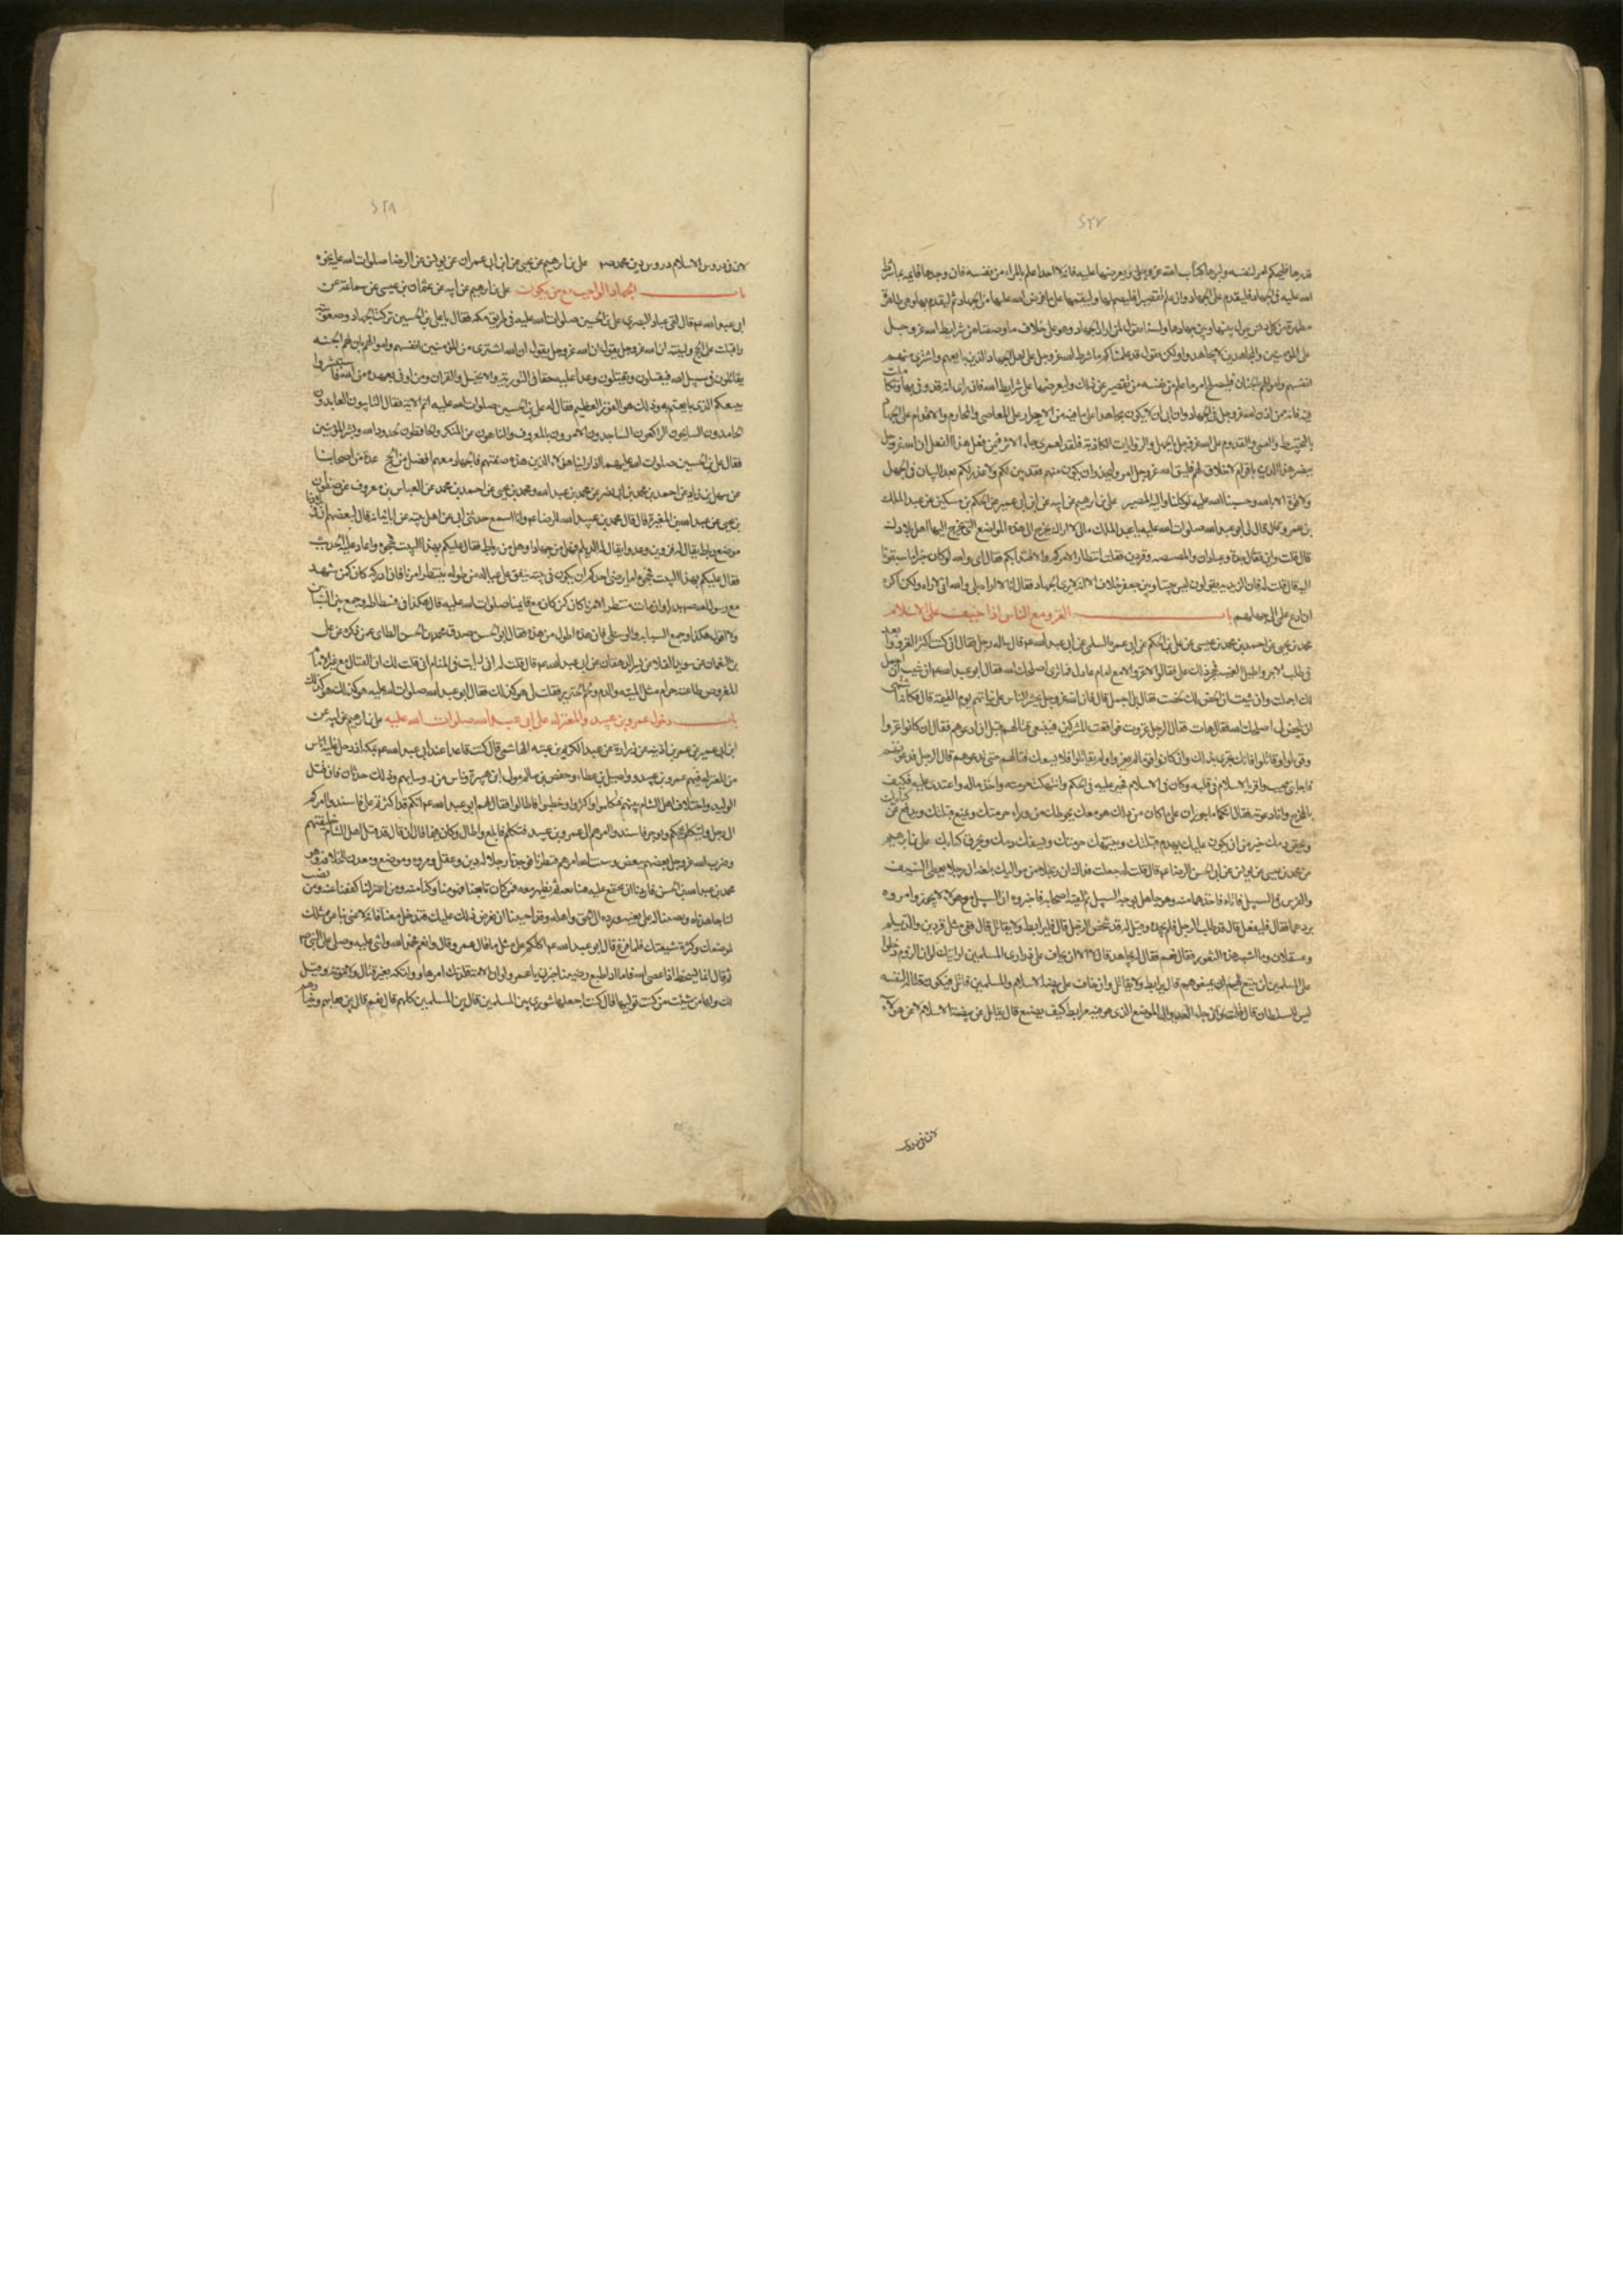 ٤٢٧
قدرها فليحكم امر لنفسه وليرها كتاب الله عز وجل ويعرضها عليه فانه لا احد اعلم بالمرء من نفسه فان وجدها قائمة بما شرط
الله عليه في الجهاد فليقدم على الجهاد وان علم تقصيرا فليصلحها وليقمها على ما فرض الله عليها من الجهاد ثم ليقدم بها وهي طاهرة
مطهرة من كل دنس يحول بينها وبين جهادها ولسنا نقول لمن اراد الجهاد وهو على خلاف ما وصفنا من شرايط الله عز وجل
على المؤمنين والمجاهدين لا تجاهدوا ولكن نقول قد علمناكم ما شرط الله عز وجل على اهل الجهاد الذين بايعهم واشترى منهم
انفسهم واموالهم بالجنان فليصلح امرء ما علم من نفسه من تقصير عن ذلك وليعرضها على شرايط الله فان راى انه قد وفى بها وتكاملت
فيه فانه ممن اذن الله عز وجل له في الجهاد وان ابى ان لا يكون مجاهدا على ما فيه من الاصرار على المعاصي والمحارم والاقدام على الجهاد
بالتخبيط والعمى والقدوم على الله عز وجل بالجهل والروايات الكاذبة فلقد لعمري جاء الاثر فيمن فعل هذا الفعل ان الله عز وجل
ينصر هذا الدين باقوام لا خلاق لهم فليتق الله عز وجل امرء وليحذر ان يكون منهم فقد بين لكم ولا عذر لكم بعد البيان في الجهل
ولا قوة الا بالله وحسبنا الله عليه توكلنا واليه المصير علي بن ابرهيم عن ابيه عن ابن ابي عمير عن الحكم بن مسكين عن عبد الملك
بن عمرو قال قال لي ابو عبد الله صلوات الله عليه يا عبد الملك مالي لا اراك تخرج الى هذه المواضع التي يخرج اليها اهل بلادك
قال قلت واين فقال جدة وعبادان والمصيصة وقزوين فقلت انتظارا لامركم والاقتداء بكم فقال اي والله لو كان خيرا ما سبقونا
اليه قال قلت له فان الزيدية يقولون ليس بيننا وبين جعفر خلاف الا انه لا يرى الجهاد فقال انا لا اراه بلى والله اني لاراه ولكن اكره
ان ادع علمي الى جهلهم باب الغزو مع الناس اذا خيف على الاسلام
محمد بن يحيى عن احمد بن محمد بن عيسى عن علي بن الحكم عن ابي عمرة السلمي عن ابي عبد الله عم قال ساله رجل فقال اني كنت اكثر الغزو وابعد
في طلب الاجر واطيل الغيبة فحجر ذلك علي فقالوا لا غزو الا مع امام عادل فما ترى اصلحك الله فقال ابو عبد الله عم ان شئت ان اجمل
لك اجملت وان شئت ان الخص لك لخصت فقال بل اجمل قال فان الله عز وجل يحشر الناس على نياتهم يوم القيمة قال فكانه اشتهى
ان يلخص له اصلحك الله فقال هات فقال الرجل غزوت فواقعت المشركين فينبغي قتالهم قبل ان ادعوهم فقال ان كانوا غزوا
وقوتلوا وقاتلوا فانك تجتري بذلك وان كانوا قوما لم يغزوا ولم يقاتلوا فلا يسعك قتالهم حتى تدعوهم قال الرجل فدعوتهم
فاجابني مجيب واقر بالاسلام في قلبه وكان في الاسلام فجير عليه في الحكم وانتهكت حرمته واخذ ماله واعتدي عليه فكيف
بالمخرج وانا دعوته فقال انكما ماجوران على ما كان من ذلك وهو معك يحوطك من وراء حرمتك ويمنع قبلتك ويدفع عن كتابك
ويحقن دمك خير من ان يكون عليك يهدم قبلتك وينتهك حرمتك ويسفك دمك ويحرق كتابك علي بن ابرهيم
عن محمد بن عيسى عن يونس عن ابي الحسن الرضا عم قال قلت له جعلت فداك ان رجلا من مواليك بلغه ان رجلا يعطي السيف
والفرس في السبيل فاتاه فاخذهما منه وهو جاهل بوجه السبيل ثم لقيه اصحابه فاخبروه ان السبيل مع هؤلاء لا يجوز وامروه
بردهما فقال فليفعل قال قد طلب الرجل فلم يجده وقيل له قد شخص الرجل قال فليرابط ولا يقاتل قال ففي مثل قزوين والديلم
وعسقلان وما اشبه هذه الثغور فقال نعم فقال له يجاهد قال لا الا ان يخاف على ذراري المسلمين ارايتك لو ان الروم دخلوا
على المسلمين لم ينبغ لهم ان يمنعوهم قال يرابط ولا يقاتل وان خاف على بيضة الاسلام والمسلمين قاتل فيكون قتاله لنفسه
ليس للسلطان قال قلت فان جاء العدو الى الموضع الذي هو فيه مرابط كيف يصنع قال يقاتل عن بيضة الاسلام لا عن هؤلاء
لان في دروس
٤٢٨
لان في دروس الاسلام دروس دين محمد ص علي بن ابرهيم عن يحيى بن ابي عمران عن يونس عن الرضا صلوات الله عليه نحوه
باب الجهاد الواجب مع من يكون علي بن ابرهيم عن ابيه عن عثمان بن عيسى عن سماعة عن
ابي عبد الله عم قال لقي عباد البصري علي بن الحسين صلوات الله عليه في طريق مكة فقال يا علي بن الحسين تركت الجهاد وصعوبته
واقبلت على الحج ولينته ان الله عز وجل يقول ان الله اشترى من المؤمنين انفسهم واموالهم بان لهم الجنة
يقاتلون في سبيل الله فيقتلون ويقتلون وعدا عليه حقا في التورية والانجيل والقران ومن اوفى بعهده من الله فاستبشروا
ببيعكم الذي بايعتم به وذلك هو الفوز العظيم فقال له علي بن الحسين صلوات الله عليه اتم الاية فقال التائبون العابدون
الحامدون السايحون الراكعون الساجدون الامرون بالمعروف والناهون عن المنكر والحافظون لحدود الله وبشر المؤمنين
فقال علي بن الحسين صلوات الله عليهما اذا راينا هؤلاء الذين هذه صفتهم فالجهاد معهم افضل من الحج عدة من اصحابنا
عن سهل بن زياد عن احمد بن محمد بن ابي نصر عن محمد بن عبد الله ومحمد بن يحيى عن احمد بن محمد عن العباس بن معروف عن صفوان
بن يحيى عن عبد الله بن المغيرة قال قال محمد بن عبد الله للرضا عم وانا اسمع حدثني ابي عن اهل بيته عن ابائه انه قال لبعضهم ان في بلادنا
موضع رباط يقال له قزوين وعدوا يقال له الديلم فهل من جهاد او هل من رباط فقال عليكم بهذا البيت فحجوه واعاد عليه الحديث
فقال عليكم بهذا البيت فحجوه اما يرضى احدكم ان يكون في بيته ينفق على عياله من طوله ينتظر امرنا فان ادركه كان كمن شهد
مع رسول الله ص بدرا وان مات منتظرا لامرنا كان كمن كان مع قايمنا صلوات الله عليه قال هكذا في فسطاطه وجمع بين السبابتين
ولا اقول هكذا وجمع السبابة والوسطى فان هذه اطول من هذه فقال ابو الحسن صدق محمد بن الحسن الطاي عمن ذكره عن علي
بن النعمان عن سويد القلا عن بشير الدهقان عن ابي عبد الله عم قال قلت له اني رايت في المنام اني قلت لك ان القتال مع غير الامام
المفروض طاعته حرام مثل الميتة والدم ولحم الخنزير فقلت لي هو كذلك فقال ابو عبد الله صلوات الله عليه هو كذلك هو كذلك
باب دخول عمرو بن عبيد والمعتزلة على ابي عبد الله صلوات الله عليه علي بن ابرهيم عن ابيه عن
ابن ابي عمير عن عمر بن اذينة عن زرارة عن عبد الكريم بن عتبة الهاشمي قال كنت قاعدا عند ابي عبد الله عم بمكة اذ دخل عليه اناس
من المعتزلة فيهم عمرو بن عبيد وواصل بن عطاء وحفص بن سالم مولى ابن هبيرة وناس من رؤسايهم وذلك حدثان قتل
الوليد واختلاف اهل الشام بينهم فتكلموا واكثروا وخطبوا فاطالوا فقال لهم ابو عبد الله عم انكم قد اكثرتم علي فاسندوا امركم
الى رجل وليتكلم بحججكم ويوجز فاسندوا امرهم الى عمرو بن عبيد فتكلم فابلغ واطال وكان فيما قال ان قال قد قتل اهل الشام خليفتهم
وضرب الله عز وجل بعضهم ببعض وشتت الله امرهم فنظرنا فوجدنا رجلا له دين وعقل ومروة وموضع ومعدن للخلافة وهو
محمد بن عبد الله بن الحسن فاردنا ان نجتمع عليه فنبايعه ثم نظهر معه فمن كان تابعنا فهو منا وكنا منه ومن اعتزلنا كففنا عنه ومن نصب
لنا جاهدناه ونصبنا له على بغيه ورده الى الحق واهله وقد احببنا ان نعرض ذلك عليك فتدخل معنا فانه لا غنى بنا عن مثلك
لموضعك وكثرة شيعتك فلما فرغ قال ابو عبد الله عم اكلكم على مثل ما قال عمرو قالوا نعم فحمد الله واثنى عليه وصلى على النبي ص
ثم قال انما نسخط اذا عصي الله فاما اذا اطيع رضينا اخبرني يا عمرو لو ان الامة قلدتك امرها وولتكه بغير قتال ولا مؤونة وقيل
لك ولها من شئت من كنت توليها قال كنت اجعلها شورى بين المسلمين قال بين المسلمين كلهم قال نعم قال بين فقهايهم وخيارهم